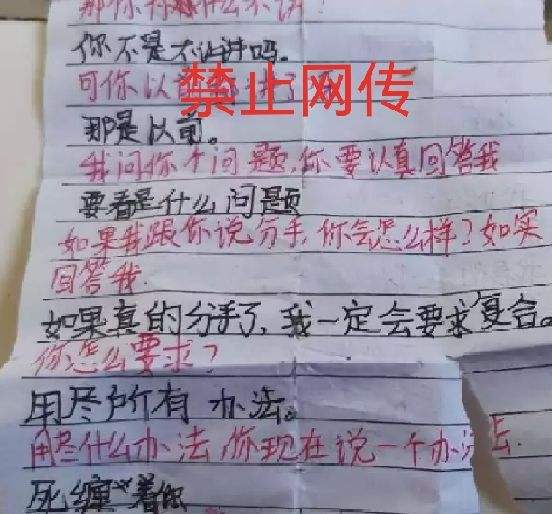 那你为什么不讲？
你不是不让讲吗。
可你以前都讲了呀
禁止网传
那是以前。
我问你个问题，你要认真回答我
要看是什么问题
如果我跟你说分手，你会怎么样？如实
回答我.
如果真的分手了，我一定会要求复合。
你怎么要求？
用尽所有 办法。
用尽什么办法，你现在说一个办法.
死缠着你